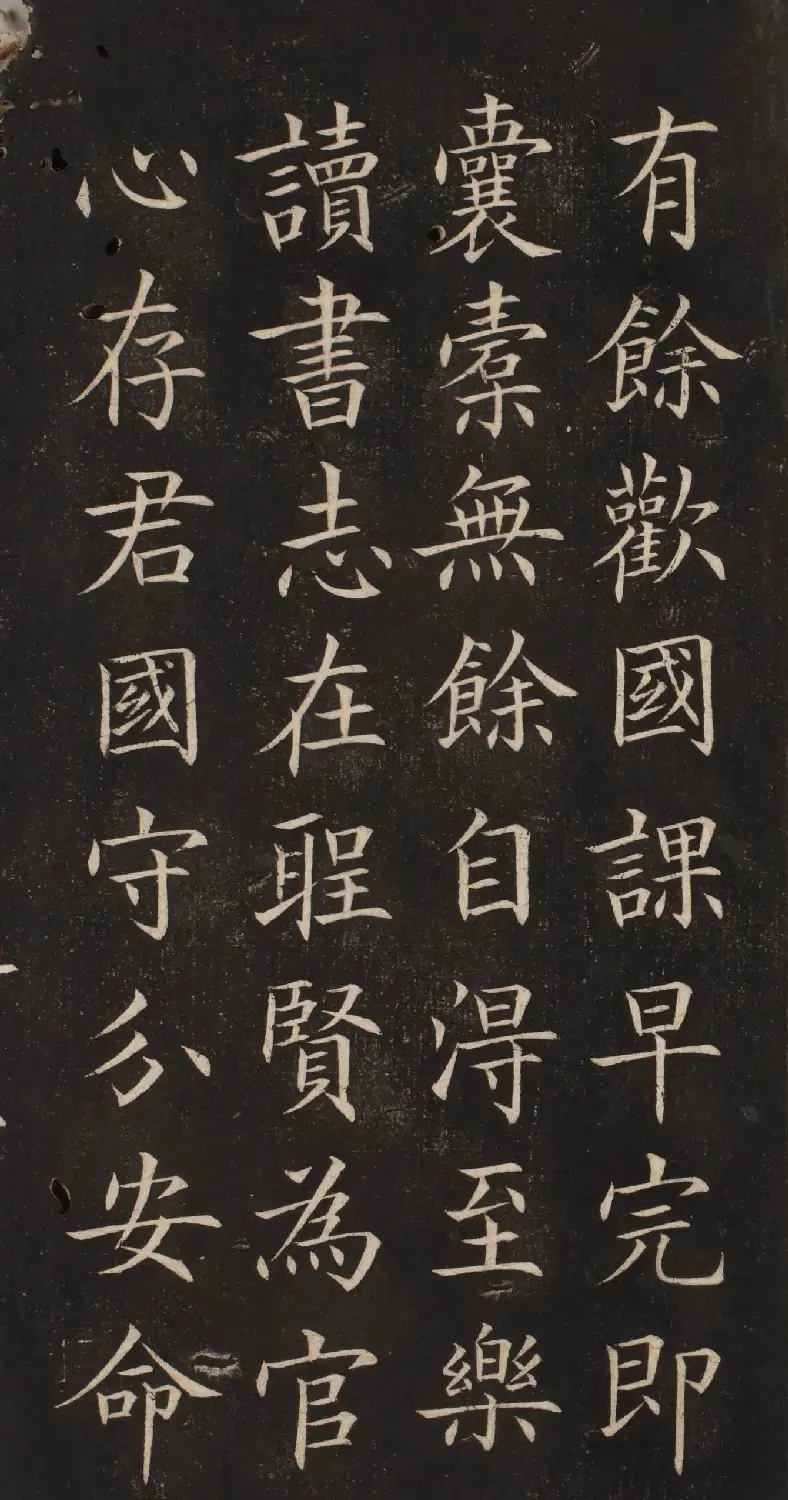 有餘歡國課早完即
囊橐無餘自淂至樂
讀書志在聖賢為官
心存君國守分安命